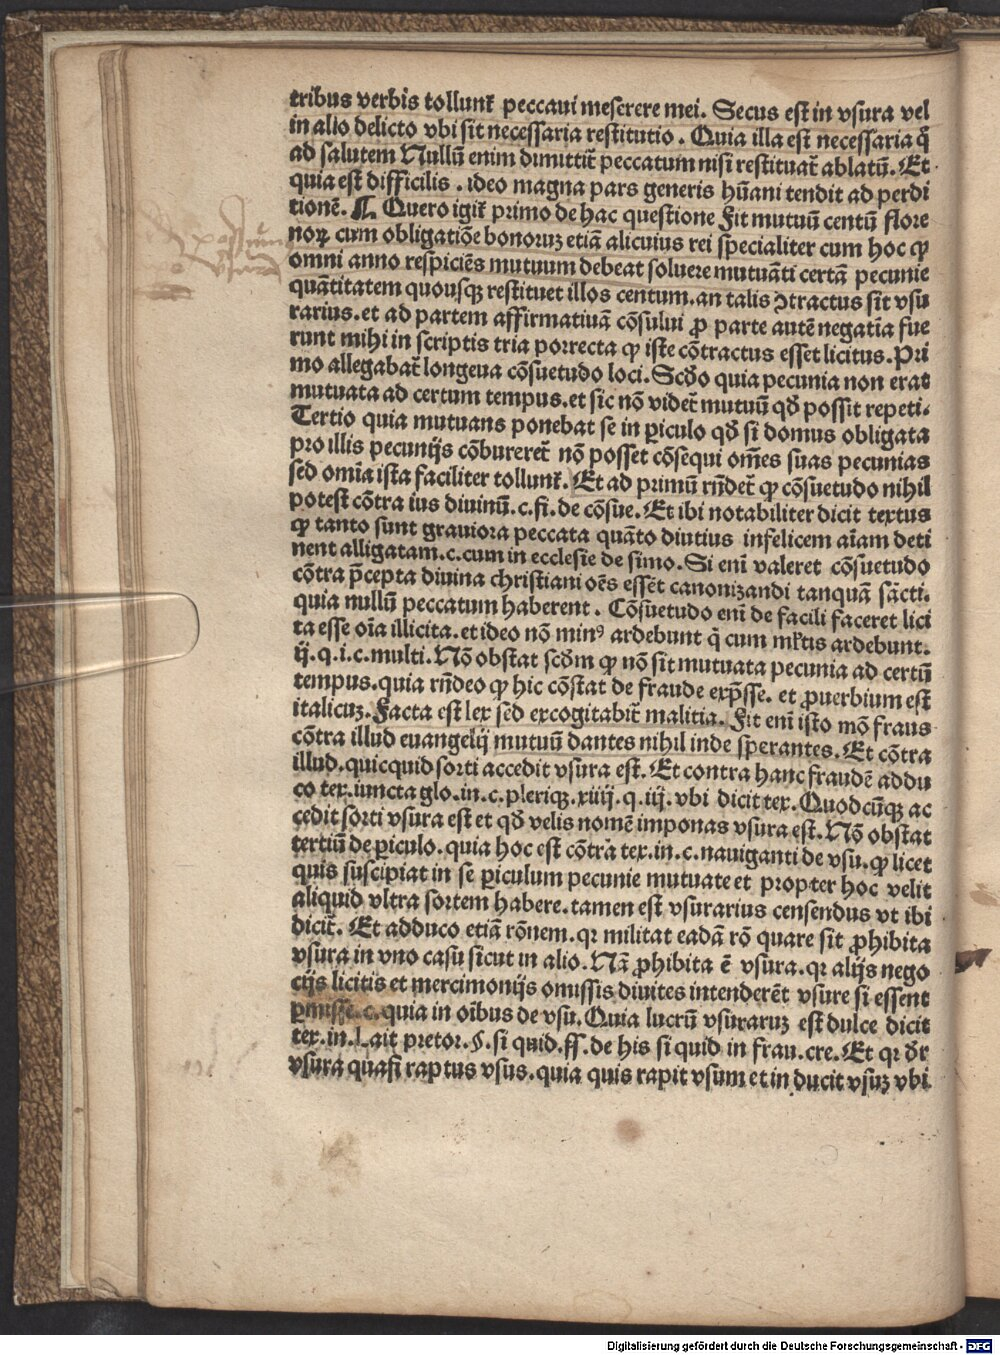 tribus verbis tollunt̉ peccaui meserere mei. Secus est in vsura vel
in alio delicto vbi sit necessaria restitutio. Quia illa est necessaria q̃
ad salutem Nullũ enim dimittit̉ peccatum nisi restituat̉ ablatũ. Et
quia est difficilis. ideo magna pars generis hũani tendit ad perdi
tionẽ. ¶ Quero igit̉ primo de hac questione Fit mutuũ centũ flore
noꝝ cum obligatiõe bonoruꝫ etiã alicuius rei specialiter cum hoc ꝙ
omni anno respiciẽs mutuum debeat soluere mutuãti certã pecunie
quãtitatem quousqꝫ restituet illos centum. an talis ꝯtractus sit vsu
rarius. et ad partem affirmatiuã cõsului ꝓ parte autẽ negatĩa fue
runt mihi in scriptis tria porrecta ꝙ iste cõtractus esset licitus. Pri
mo allegabat̉ longeua cõsuetudo loci. Scðo quia pecunia non erat
mutuata ad certum tempus. et sic nõ videt̉ mutuũ qð possit repeti.
Tertio quia mutuans ponebat se in ꝑiculo qð si domus obligata
pro illis pecunijs cõbureret̉ nõ posset cõsequi om̃es suas pecunias
sed om̃ia ista faciliter tollunt̉. Et ad primũ rñdet̉ ꝙ cõsuetudo nihil
potest cõtra ius diuinũ. c. fi. de cõsue. Et ibi notabiliter dicit textus
ꝙ tanto sunt grauiora peccata quãto diutius infelicem aĩam deti
nent alligatam. c. cum in ecclesie de simo. Si enĩ valeret cõsuetudo
cõtra p̃cepta diuina christiani oẽs essẽt canonizandi tanquã sãcti.
quia nullũ peccatum haberent. Cõsuetudo enĩ de facili faceret lici
ta esse oĩa illicita. et ideo nõ minꝰ ardebunt q̃ cum ml̃tis ardebunt.
ij. q. i. c. multi. Nõ obstat scðm ꝙ nõ sit mutuata pecunia ad certũ
tempus. quia rñdeo ꝙ hic cõstat de fraude exp̃sse. et ꝓuerbium est
italicuꝫ. Facta est lex sed excogitabit̉ malitia. Fit enĩ isto mõ fraus
cõtra illud euangelij mutuũ dantes nihil inde sperantes. Et cõtra
illud. quicquid sorti accedit vsura est. Et contra hanc fraudẽ addu
co tex. iuncta glo. in. c. pleriqꝫ. xiiij. q. iij. vbi dicit tex. Quodcũqꝫ ac
cedit sorti vsura est et qð velis nomẽ imponas vsura est. Nõ obstat
tertiũ de ꝑiculo. quia hoc est cõtra tex. in. c. nauiganti de vsu. ꝙ licet
quis suscipiat in se ꝑiculum pecunie mutuate et propter hoc velit
aliquid vltra sortem habere. tamen est vsurarius censendus vt ibi
dicit̉. Et adduco etiã rõnem. qꝛ militat eadã rõ quare sit ꝓhibita
vsura in vno casu sicut in alio. Nã ꝓhibita ẽ vsura. qꝛ alijs nego
cijs licitis et mercimonijs omissis diuites intenderẽt vsure si essent
ꝑmisse. c. quia in oĩbus de vsu. Quia lucrũ vsuraruꝫ est dulce dicit
tex. in. l. ait pretor. §. si quid. ff. de his si quid in frau. cre. Et qꝛ ðr
vsura quasi raptus vsus. quia quis rapit vsum et in ducit vsuꝫ vbi
Digitalisierung gefördert durch die Deutsche Forschungsgemeinschaft - DFG